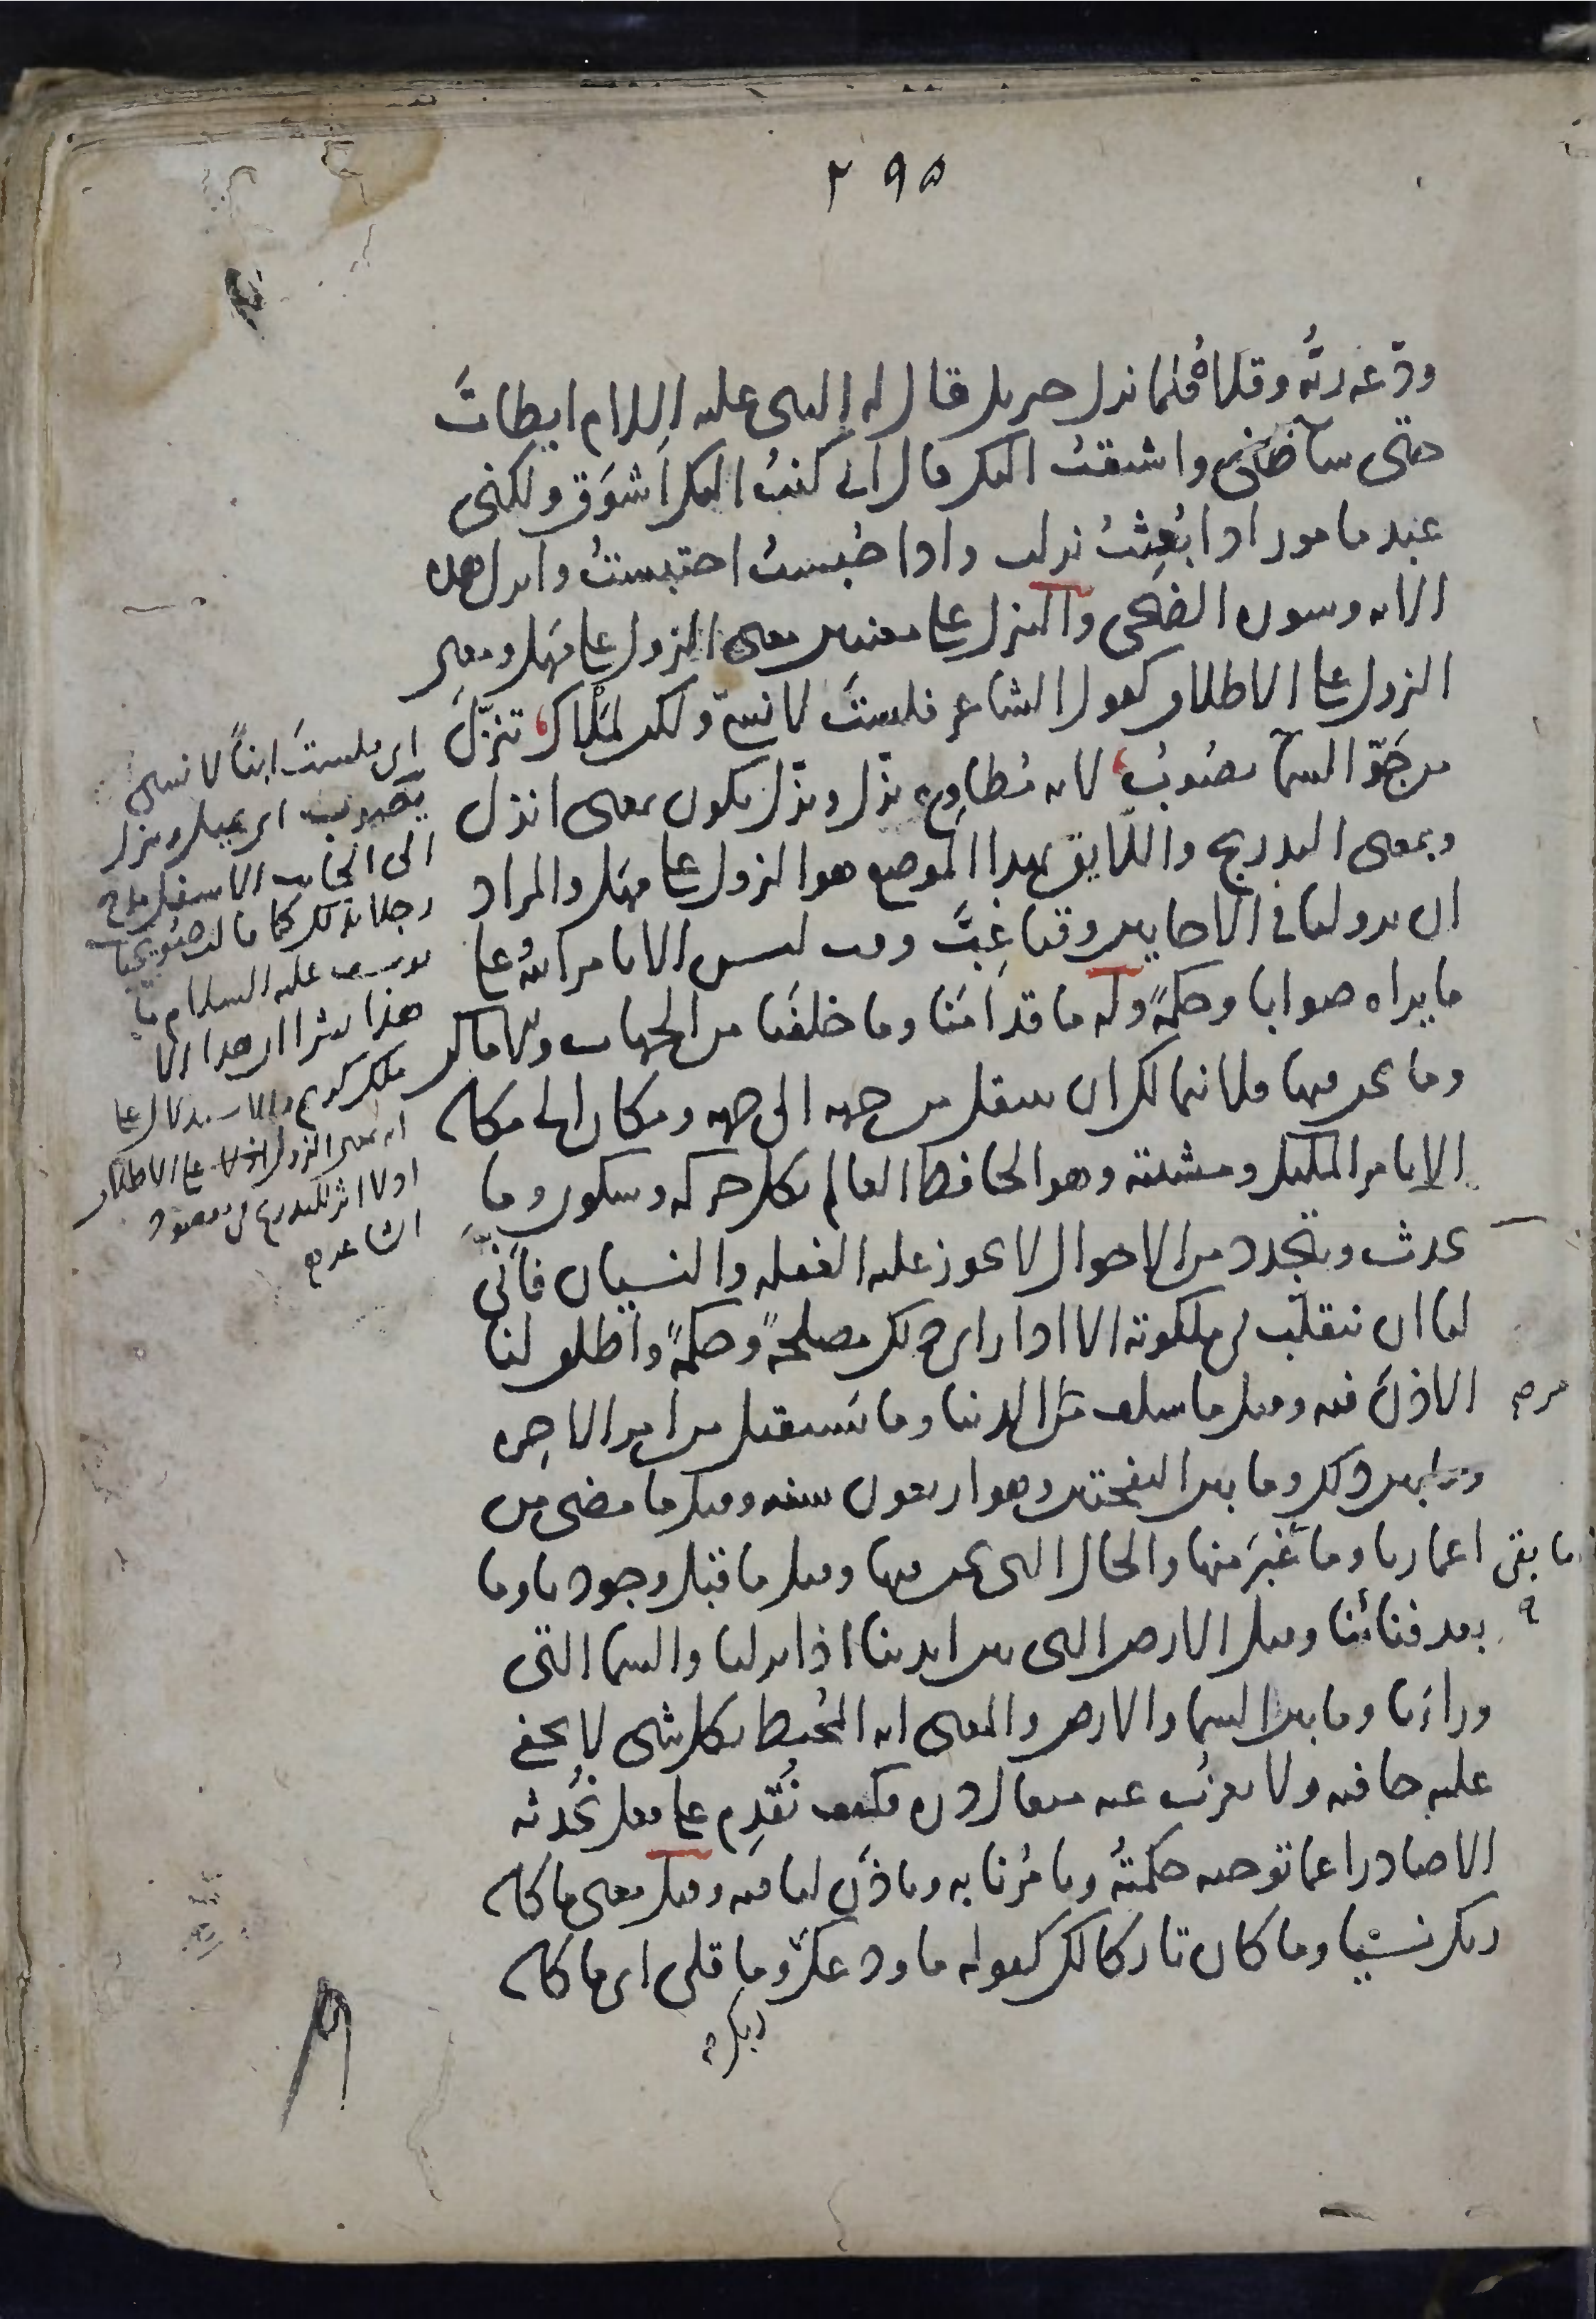 ٢٩٥
ودّعه ربُّه وقلاهُ فلما نزل جبريل قال له النبي عليه السلام ابطاتَ
حتى ساء ظني واشتقت اليك قال اني كنتُ اليك اَشوَق ولكني
عبد مامور اذا بُعِثتُ نزلت واذا حُبستُ احتبستُ وانزل هذه
الايه وسوره الضحى والتنزل على معنيين معنى النزول على مَهَل ومعنى
النزول على الاطلاق كقول الشاعر فلستَ لانسيّ ولكن لمَلْأك تنزّلَ
من جَوّ السماء يصُوبُ لانه مُطاوِع نزّل ونزّل يكون بمعنى انزل
وبمعنى التدريج واللايق بهذا الموضع هو النزول على مَهَل والمراد
ان نزولنا في الاحايين وقتا غِبَّ وقت ليس الا بامر الله على
ما يراه صوابا وحكمةً وله ما قدامَنا وما خلفَنا من الجهات والاماكن
وما نحن فيها فلا نتمالك ان ننتقل من جهه الى جهه ومكان الى مكان
الا بامر المليك ومشيته وهو الحافظ العالم بكل حركه وسكون وما
يحدث ويتجدد من الاحوال لا يجوز عليه الغفله والنسيان فاَنّى
لنا ان نتقلّب في ملكوته الا اذا راى ذلك مصلحةً وحكمةً واطلق لنا
الاذنَ فيه وقيل ما سلف من امر الدنيا وما يُستقبل من امر الاخره
وما بين ذلك وما بين النفختين وهو اربعون سنه وقيل ما مضى من
اعمارنا وما غَبَر منها والحال التي نحن فيها وقيل ما قبل وجودنا وما
بعد فنائنا وقيل الارض التي بين ايدينا اذا نزلنا والسما التي
وراءنا وما بين السما والارض والمعنى انه المُحيط بكل شي لا يخفى
عليه خافيه ولا يعزُب عنه مثقال ذره فكيف نُقدِم على فعل نُحدثه
الا صادرا عما توجبه حكمتُه ويامُرنا به وياذَن لنا فيه وقيل معنى ما كان
ربك نسيّا وما كان تاركا لك كقوله ما ودعك وما قلى اى ما كان
ربك
اى فلستَ ابناً لانسى
يَصُوب اى يميل وينزل
الى الجانب الاسفل مدح
رجلا بذلك كما قالت صُويحبات
يوسف عليه السلام ما
هذا بشرا ان هذا الا
ملك كريم والاستدلال على
انه بمعنى النزول على الاطلاق
اذ لا اثر للتدريج في مقصود
الشاعر
ما بقى